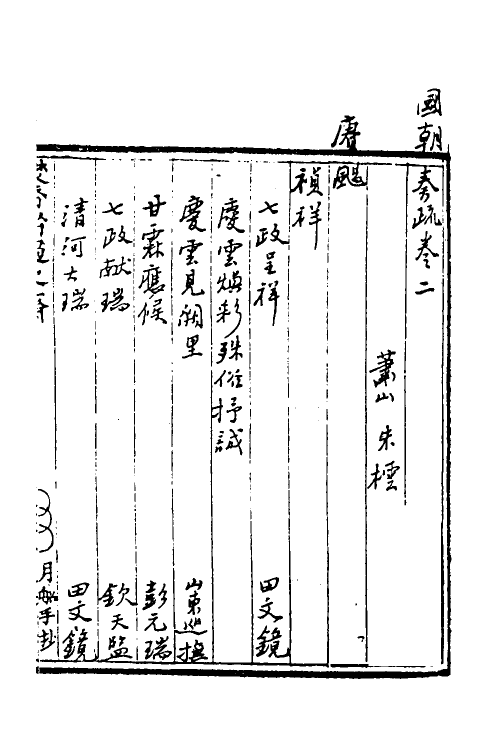 國朝奏疏卷二
蕭山 朱橒
賡颺
禎祥
七政呈祥 田文鏡
慶雲煥彩殊俗抒誠
慶雲見闕里 山東巡撫
甘霖應候 彭元瑞
七政献瑞 欽天監
清河大瑞 田文鏡
月 手鈔